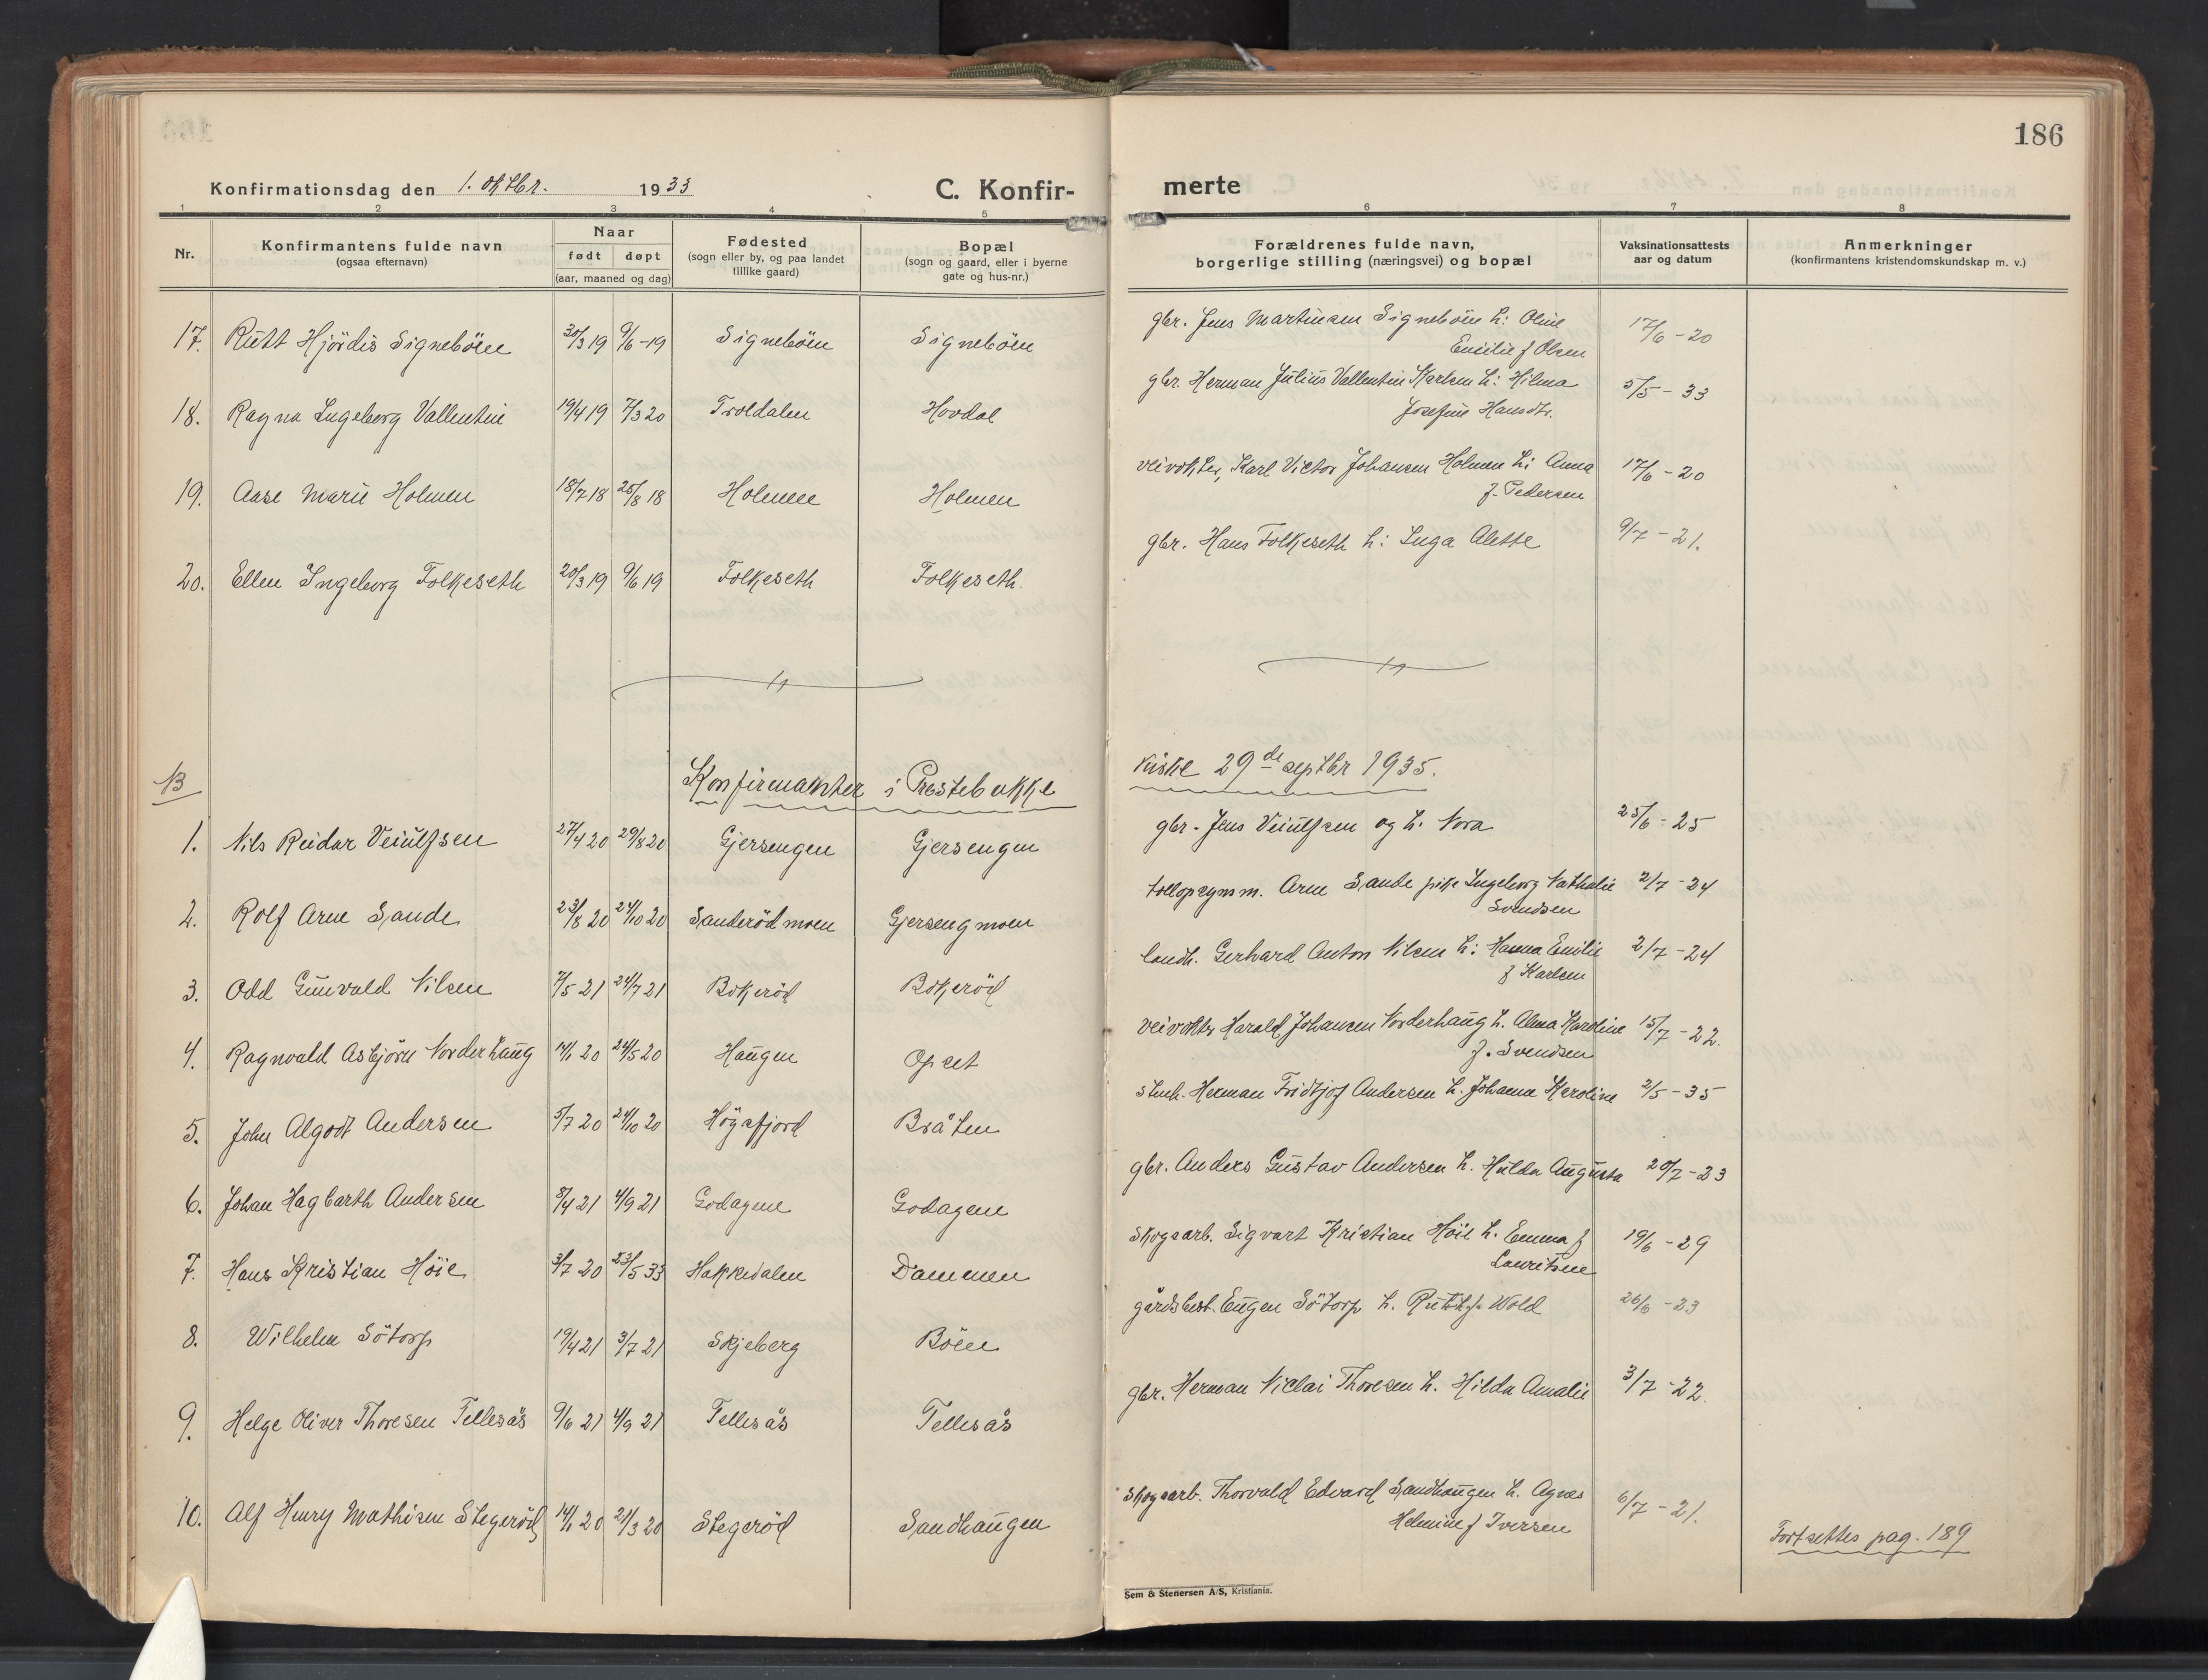 186
Konfirmationsdag den 1. oktbr. 1933
C. Konfir-
merte
1 2 3 4 5 6 7 8
Nr.
Konfirmantens fulde navn
(ogsaa efternavn)
Naar
født døpt
(aar, maaned og dag)
Fødested
(sogn eller by, og paa landet
tillike gaard)
Bopæl
(sogn og gaard, eller i byerne
gate og hus-nr.)
Forældrenes fulde navn,
borgerlige stilling (næringsvei) og bopæl
Vaksinationsattests
aar og datum
Anmerkninger
(konfirmantens kristendomskundskap m. v.)
17. Rutt Hjördis Signeböen 30/3 19 9/6-19 Signeböen Signeböen gbr. Jens Martinsen Signeböen h: Oline 17/6-20
Emilie f Olsen
18. Ragna Ingeborg Vallentin 19/4 19 7/3 20 Troldalen Hovdal gbr. Herman Julius Vallentin Karlsen h: Hilma 5/5-33
Josefine Hansdtr.
19. Aase Marie Holmen 18/7 18 25/8 18 Holmen Holmen veivokter, Karl Victor Johansen Holmen h: Anna 17/6-20
f. Pedersen
20. Ellen Ingeborg Folkeseth 20/3 19 9/6 19 Folkeseth Folkeseth. gbr. Hans Folkeseth h: Inga Alette 9/7-21.
B Konfirmanter i Prestebakke kirke 29de septbr 1935.
1. Nils Reidar Veiulfsen 27/4 20 29/8 20 Gjersengen Gjersengen gbr. Jens Veiulfsen og h. Nora 25/6-25
2. Rolf Arne Sande 23/8 20 24/10 20 Sanderödmoen Gjersengmoen tollopsynsm. Arne Sande pike Ingeborg Nathalie 2/7-24
Svendsen
3. Odd Gunvald Nilsen 7/5 21 24/7 21 Bokeröd Bokeröd landh. Gerhard Anton Nilsen h: Hanna Emilie 2/7-24
f Karlsen
4. Ragnvald Asbjörn Norderhaug 14/1 20 24/5 20 Haugen Opset veivokter Harald Johansen Norderhaug h. Alma Karoline 15/7-22.
f. Svendsen
5. John Algodt Andersen 5/7 20 24/10 20 Högsfjord Bråten stenh. Herman Fridtjof Andersen h. Johanne Karoline 2/5-35
6. Johan Hagbarth Andersen 8/4 21 4/9 21 Godagene Godagene gbr. Anders Gustav Andersen h. Hulda Augusta 20/7-23
7. Hans Kristian Höie 3/7 20 23/5 33 Hakkedalen Dammen skogsarb. Sigvart Kristian Höie h. Emma f 19/6-29
Lauritsen
8. Wilhelm Sötorp 19/4 21 3/7 21 Skjeberg Böen gårdsbest. Eugen Sötorp h. Ruth f. Wold 26/6-23
9. Helge Oliver Thoresen Tellesås 9/6 21 4/9 21 Tellesås Tellesås gbr. Herman Niclai Thoresen h. Hilda Amalie 3/7-22.
10. Alf Henry Mathisen Stegeröd 14/1 20 21/3 20 Stegeröd Sandhaugen skogsarb. Thorvald Edvard Sandhaugen h. Agnes 6/7-21.
Helmine f Iversen
Fortsettes pag. 189
Sem & Stenersen A/S, Kristiania.